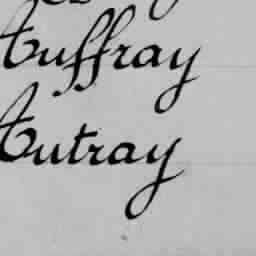 Auffray
Autray